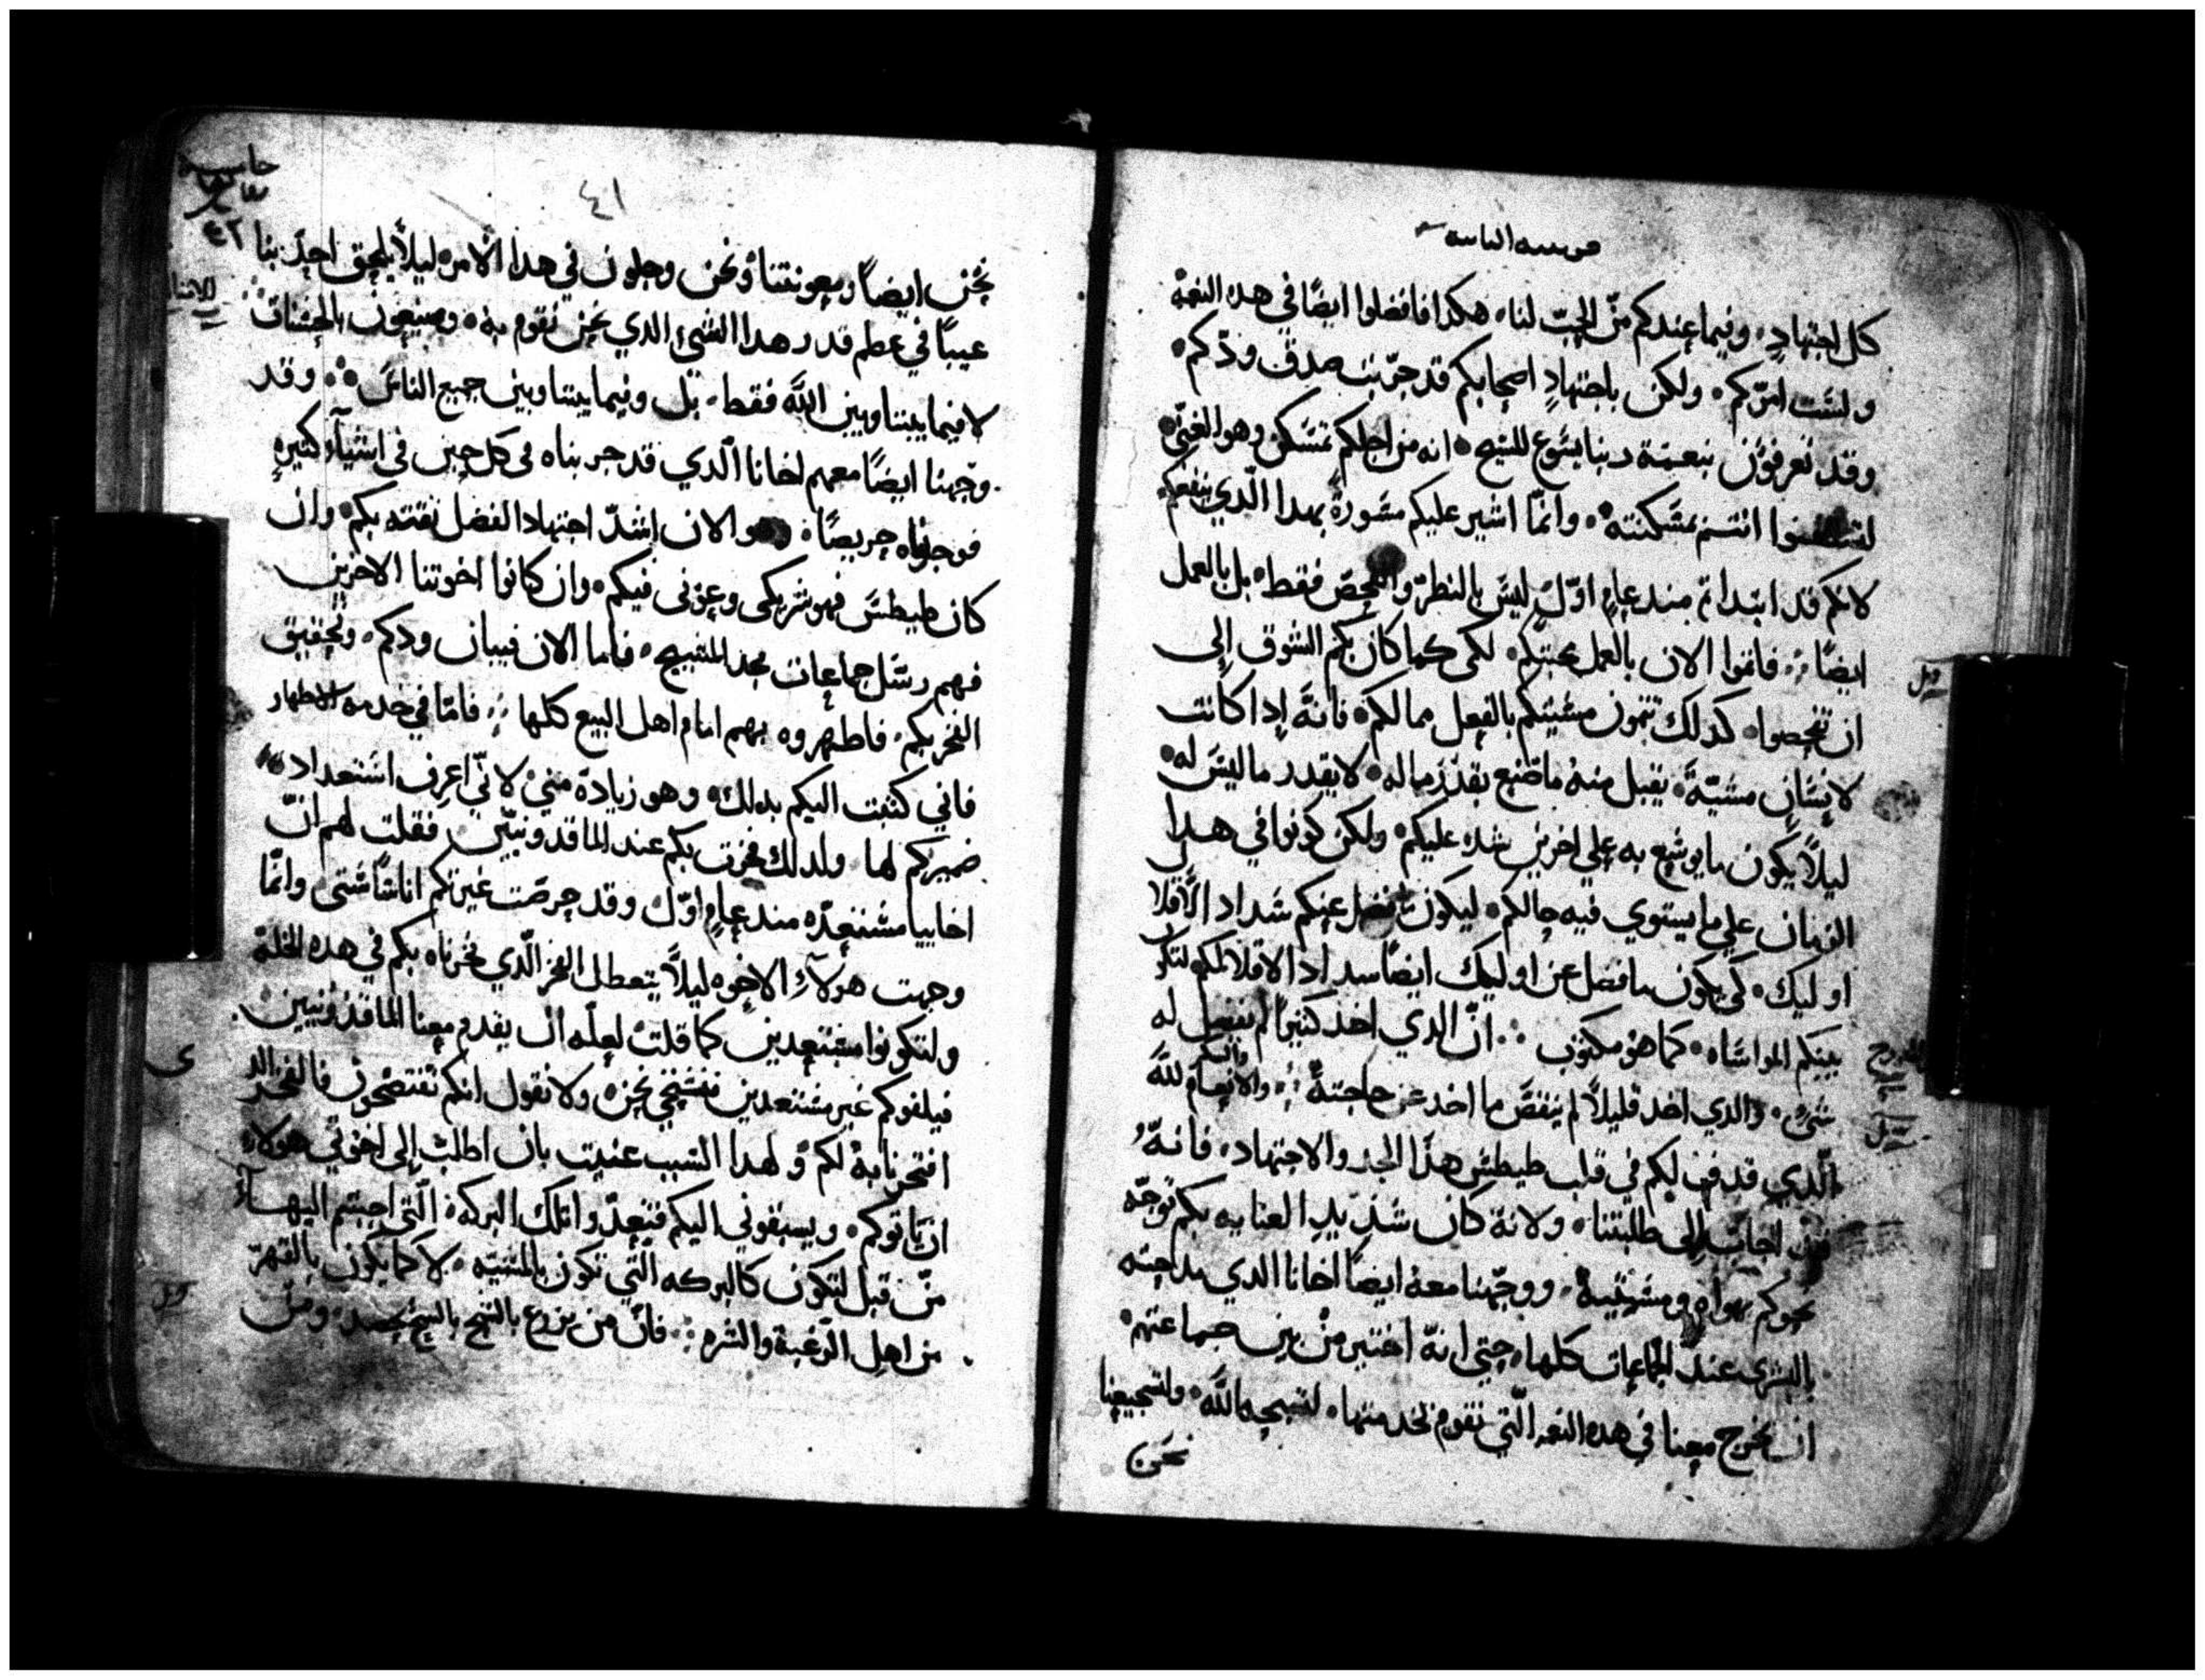 كل اجتهاد، وفيما عندكم من الحب لنا، هكدا فافضلوا ايضًا في هده النعمه
ولست امركم، ولكن باجتهاد اصحابكم قد جربت صدق ودكم،
وقد تعرفون بنعمة ربنا يسوع المسيح، انه من اجلكم تمسكن وهو الغني،
انتم بمسكنته، وانما اشير عليكم مشورة بهدا الدي ينفعكم
لانكم قد ابتداتم مند عام اول ليس بالنظر والفحص فقط، بل بالعمل
ايضًا، فاتموا الان بالعمل محبتكم، لكي كما كان بكم الشوق إلى
ان تفحصوا، كدلك تتمون مشيتكم بالفعل مما لكم، فانه إدا كانت
لإنسان مشية، يقبل منه ما صنع بقدر ماله، لا بقدر ما ليس له،
ليلا يكون ما يوسع به علي اخرين شده عليكم، ولكن كونوا في هدا
الزمان علي ما يستوي فيه حالكم، ليكون ما فضل عنكم سداد الاقلال
اوليك، كي يكون ما فضل عن اوليك ايضًا سداد الاقلالكم لتكن
بينكم المواساه، كما هو مكتوب، انّ الدي اخد كثيرًا لم يفضل له
شيء، والدي اخد قليلًا لم ينقص ما اخد عن حاجته، والانعام لله
الّدي قدف لكم في قلب طيطس هدا الجد والاجتهاد، فانه
اجاب إلى طلبتنا، ولانه كان شديد العنايه بكم توجّه
نحوكم بهواه ومشيته، ووجّهنا معه ايضًا اخانا الدي مداحته
بالبشرى عند الجماعات كلها، حتي انه اختير من بين جماعتهم
ان يخرج معنا في هده النعمه الّتي نقوم بخدمتها، لتسبحه الله، ولتشجيعنا
نحن
٤١
نحن ايضًا ومعونتنا، ونحن وجلون في هدا الامر، ليلًا يلحق احد بنا
عيبًا في عظم قدر هدا الشي الدي نحن نقوم به، ومعنيون بالحسنات
لا فيما بيننا وبين الله فقط، بل وفيما بيننا وبين جميع الناس، وقد
وجّهنا ايضًا معهم اخانا الّدي قد جربناه في كل حين في اشيآء كثيره
فوجدناه حريصًا، والان اشدّ اجتهادا لفضل ثقته بكم، وان
كان طيطس فهو شريكى وعونى فيكم، وان كانوا اخوتنا الاخرين
فهم رسل جماعات مجد المسيح، فاما الان فبيان ودكم، وتحقيق
الفخر بكم، فاظهروه بهم امام اهل البيع كلها، فامّا في خدمه الاطهار
فاني كتبت اليكم بدلك، وهو زيادة مني، لانّي اعرف استعداد
ضميركم لها ولدلك فخرت بكم عند الماقدونيّين، فقلت لهم انّ
اخاييا مستعدّه مند عام اوّل، وقد حرصت غيرتكم اناسًا شتى، وانّما
وجهت هولآء الاخوه ليلًا يتعطل الفخر الّدي فخرناه بكم في هده الخلة
ولتكونوا مستعدين كما قلت، لعله أن يقدم معنا الماقدونيين
فيلفوكم غير مستعدين فنستخي نحن، ولا نقول انكم تفتضحون فالفخر الد
افتخرنا به لكم، ولهدا السبب عنيت بان اطلب إلى اخوتي هولاء
ان ياتوكم، ويسبقوني اليكم فتعدّوا تلك البركة الّتي اجبتم اليهآ
من قبل لتكون كالبركه الّتي تكون بالمشيّه، لا كما يكون بالقهر
من اهل الرغبة والشره، فانّ من يزرع بالشح بالشح يحصد، ومن